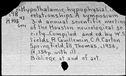 Hypothalamic-hypophysial inter-
relationships. A symposium.
3rd annual scientific meeting
of the Houston neurological so-
ciety. Compiled and ed. by W.S.
Fields, R. Guillemin, C.A. Carton
Springfield, Ill, Thomas, 1956.
with
Bibliogr. at end of art.